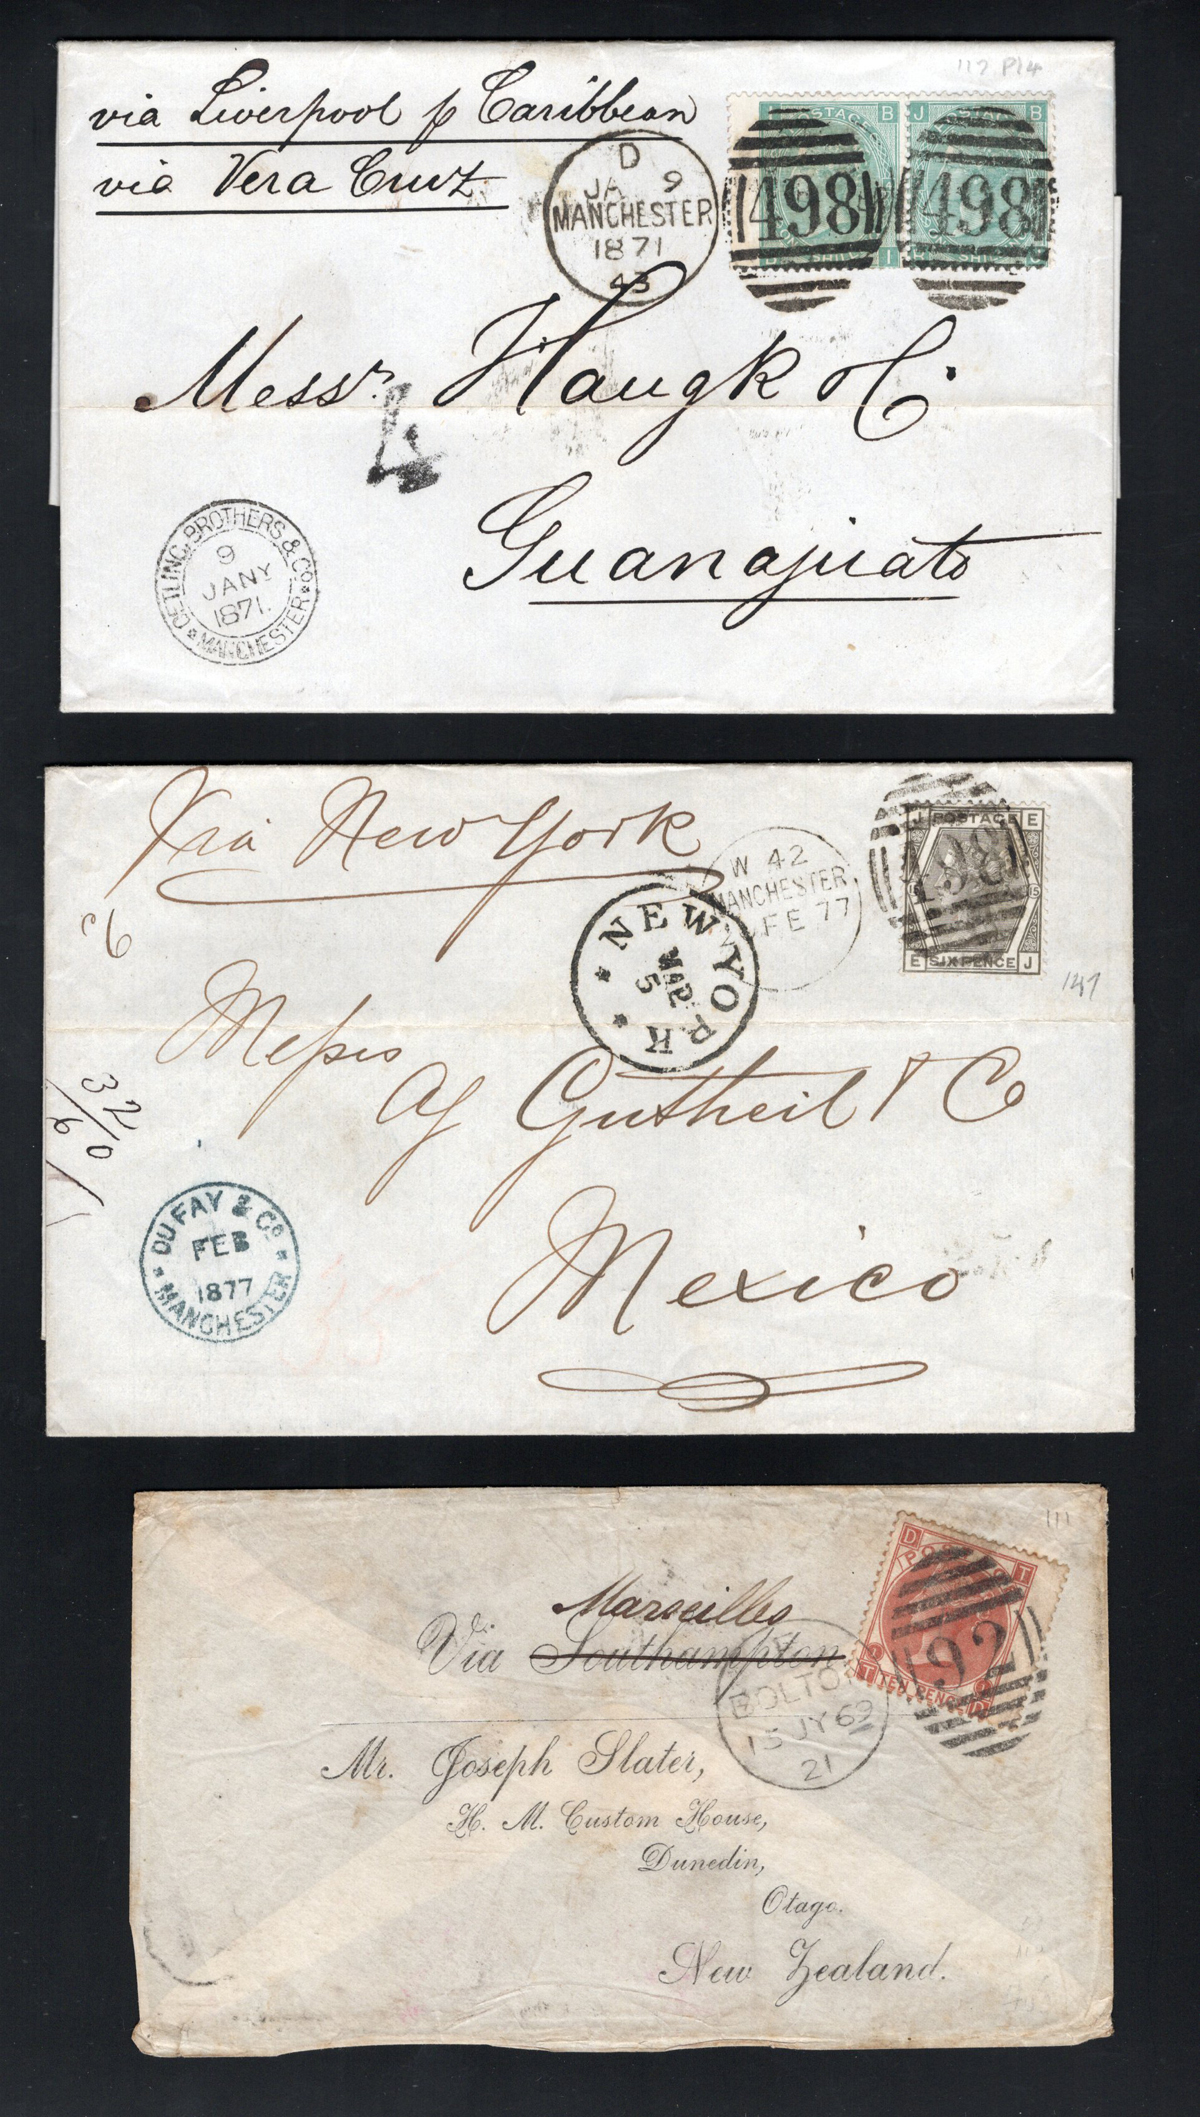 117 P14
via Liverpool p Caribbean
via Vera Cruz
D
JA 9
MANCHESTER
1871
43
498
498
J B
J B
POSTAGE
Messrs. Haugk & C.
4
Guanajuato
OETLING, BROTHERS & Co.
9
JANY
1871.
MANCHESTER
Via New York
W 42
MANCHESTER
FE 77
498
J POSTAGE E
15 15
E SIX PENCE J
147
NEW YORK
MAR
5
Messrs
Gutheil & Co
Mexico
32/0
/6
DUFAY & Co
FEB
1877
MANCHESTER
111
D T
POSTAGE
92
1 1
T TEN PENCE D
Marseilles
Via Southampton
BOLTON
15 JY 69
21
Mr. Joseph Slater,
H. M. Custom House,
Dunedin,
Otago.
New Zealand.